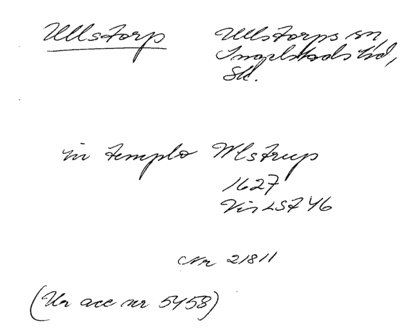 Ullstorp Ullstorps sn,
Ingelstads hd,
Sk.
in templo Wlstrup
1627
Vis LSÅ 46
Nr 21811
(Ur acc nr 5458)